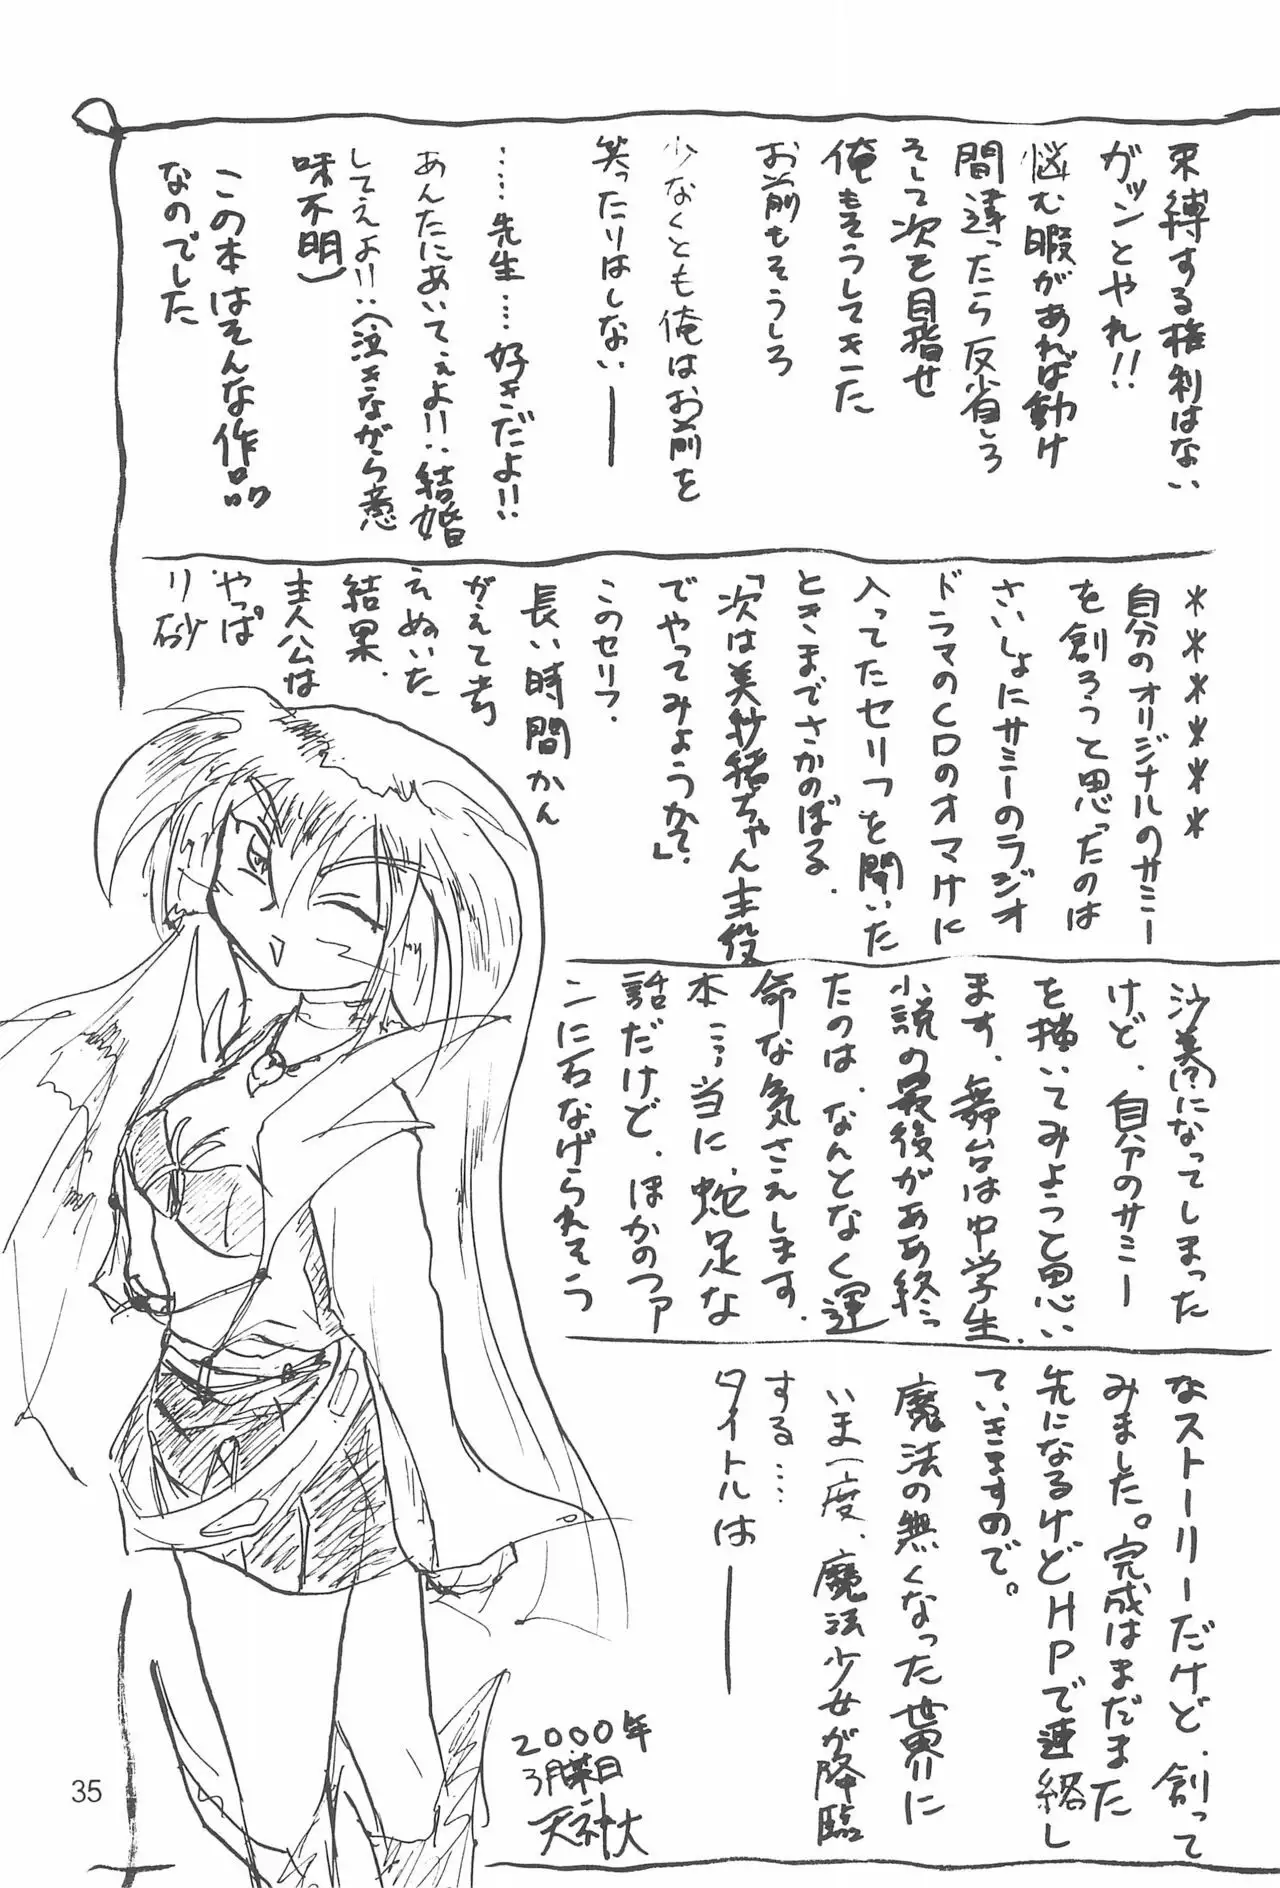 束縛する権利はない
ガツンとやれ!!
悩む暇があれば動け
間違ったら反省しろ
そして次を目指せ
俺もそうしてきた
お前もそうしろ
少なくとも俺はお前を
笑ったりはしない――
……先生…好きだよ!!
あんたにあいてぇよ!!:結婚
してえよ!!:(泣きながら意
味不明)
この本はそんな作品
なのでした
******
自分のオリジナルのサミー
を創ろうと思ったのは
さいしょにサミーのラジオ
ドラマのCDのオマケに
入ってたセリフを聞いた
ときまでさかのぼる.
「次は美紗緒ちゃん主役
でやってみようか?」
このセリフ.
長い時間かん
がえて考
えぬいた
結果.
主人公は
やっぱ
り砂
沙美になってしまった
けど、自分のサミー
を描いてみようと思い
ます。舞台は中学生.
小説の最後がああ終っ
たのは、なんとなく運
命な気さえします.
本…当に、蛇足な
話だけど、ほかのファ
ンに石なげられそう
なストーリーだけど、創って
みました。完成はまだまだ
先になるけどHPで連絡し
ていきますので。
魔法の無くなった世界に
いま一度、魔法少女が降臨
する……
タイトルは――
2000年
3月 日
天神大
35